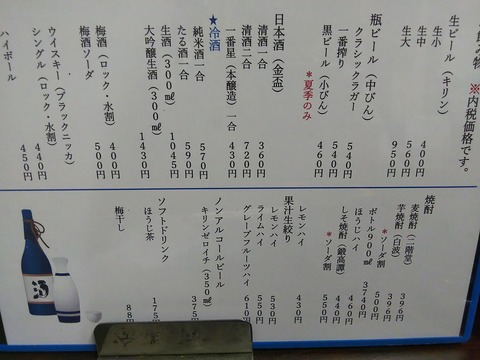 飲み物 ※内税価格です。
生ビール（キリン）
生小 400円
生中 560円
生大 950円
瓶ビール（中びん）
クラシックラガー 540円
一番搾り 540円
黒ビール（小びん） 460円
＊夏季のみ
日本酒（金盃）
清酒一合 360円
清酒二合 720円
一番星（本醸造）一合 430円
★冷酒
純米酒一合 570円
たる酒一合 590円
生酒（300㎖） 1045円
大吟醸生酒（300㎖） 1430円
梅酒（ロック・水割） 400円
梅酒ソーダ 500円
ウイスキー（ブラックニッカ）
シングル（ロック・水割） 440円
ハイボール 450円
焼酎
麦焼酎（二階堂） 396円
芋焼酎（白波） 396円
＊ソーダ割 500円
ボトル900㎖ 3740円
ほうじハイ 460円
しそ焼酎（鍛高譚） 440円
＊ソーダ割 550円
レモンハイ 430円
果汁生絞り
レモンハイ 530円
ライムハイ 550円
グレープフルーツハイ 610円
ノンアルコールビール
キリンゼロイチ（350㎖） 375円
ソフトドリンク
ほうじ茶 175円
梅干し 88円